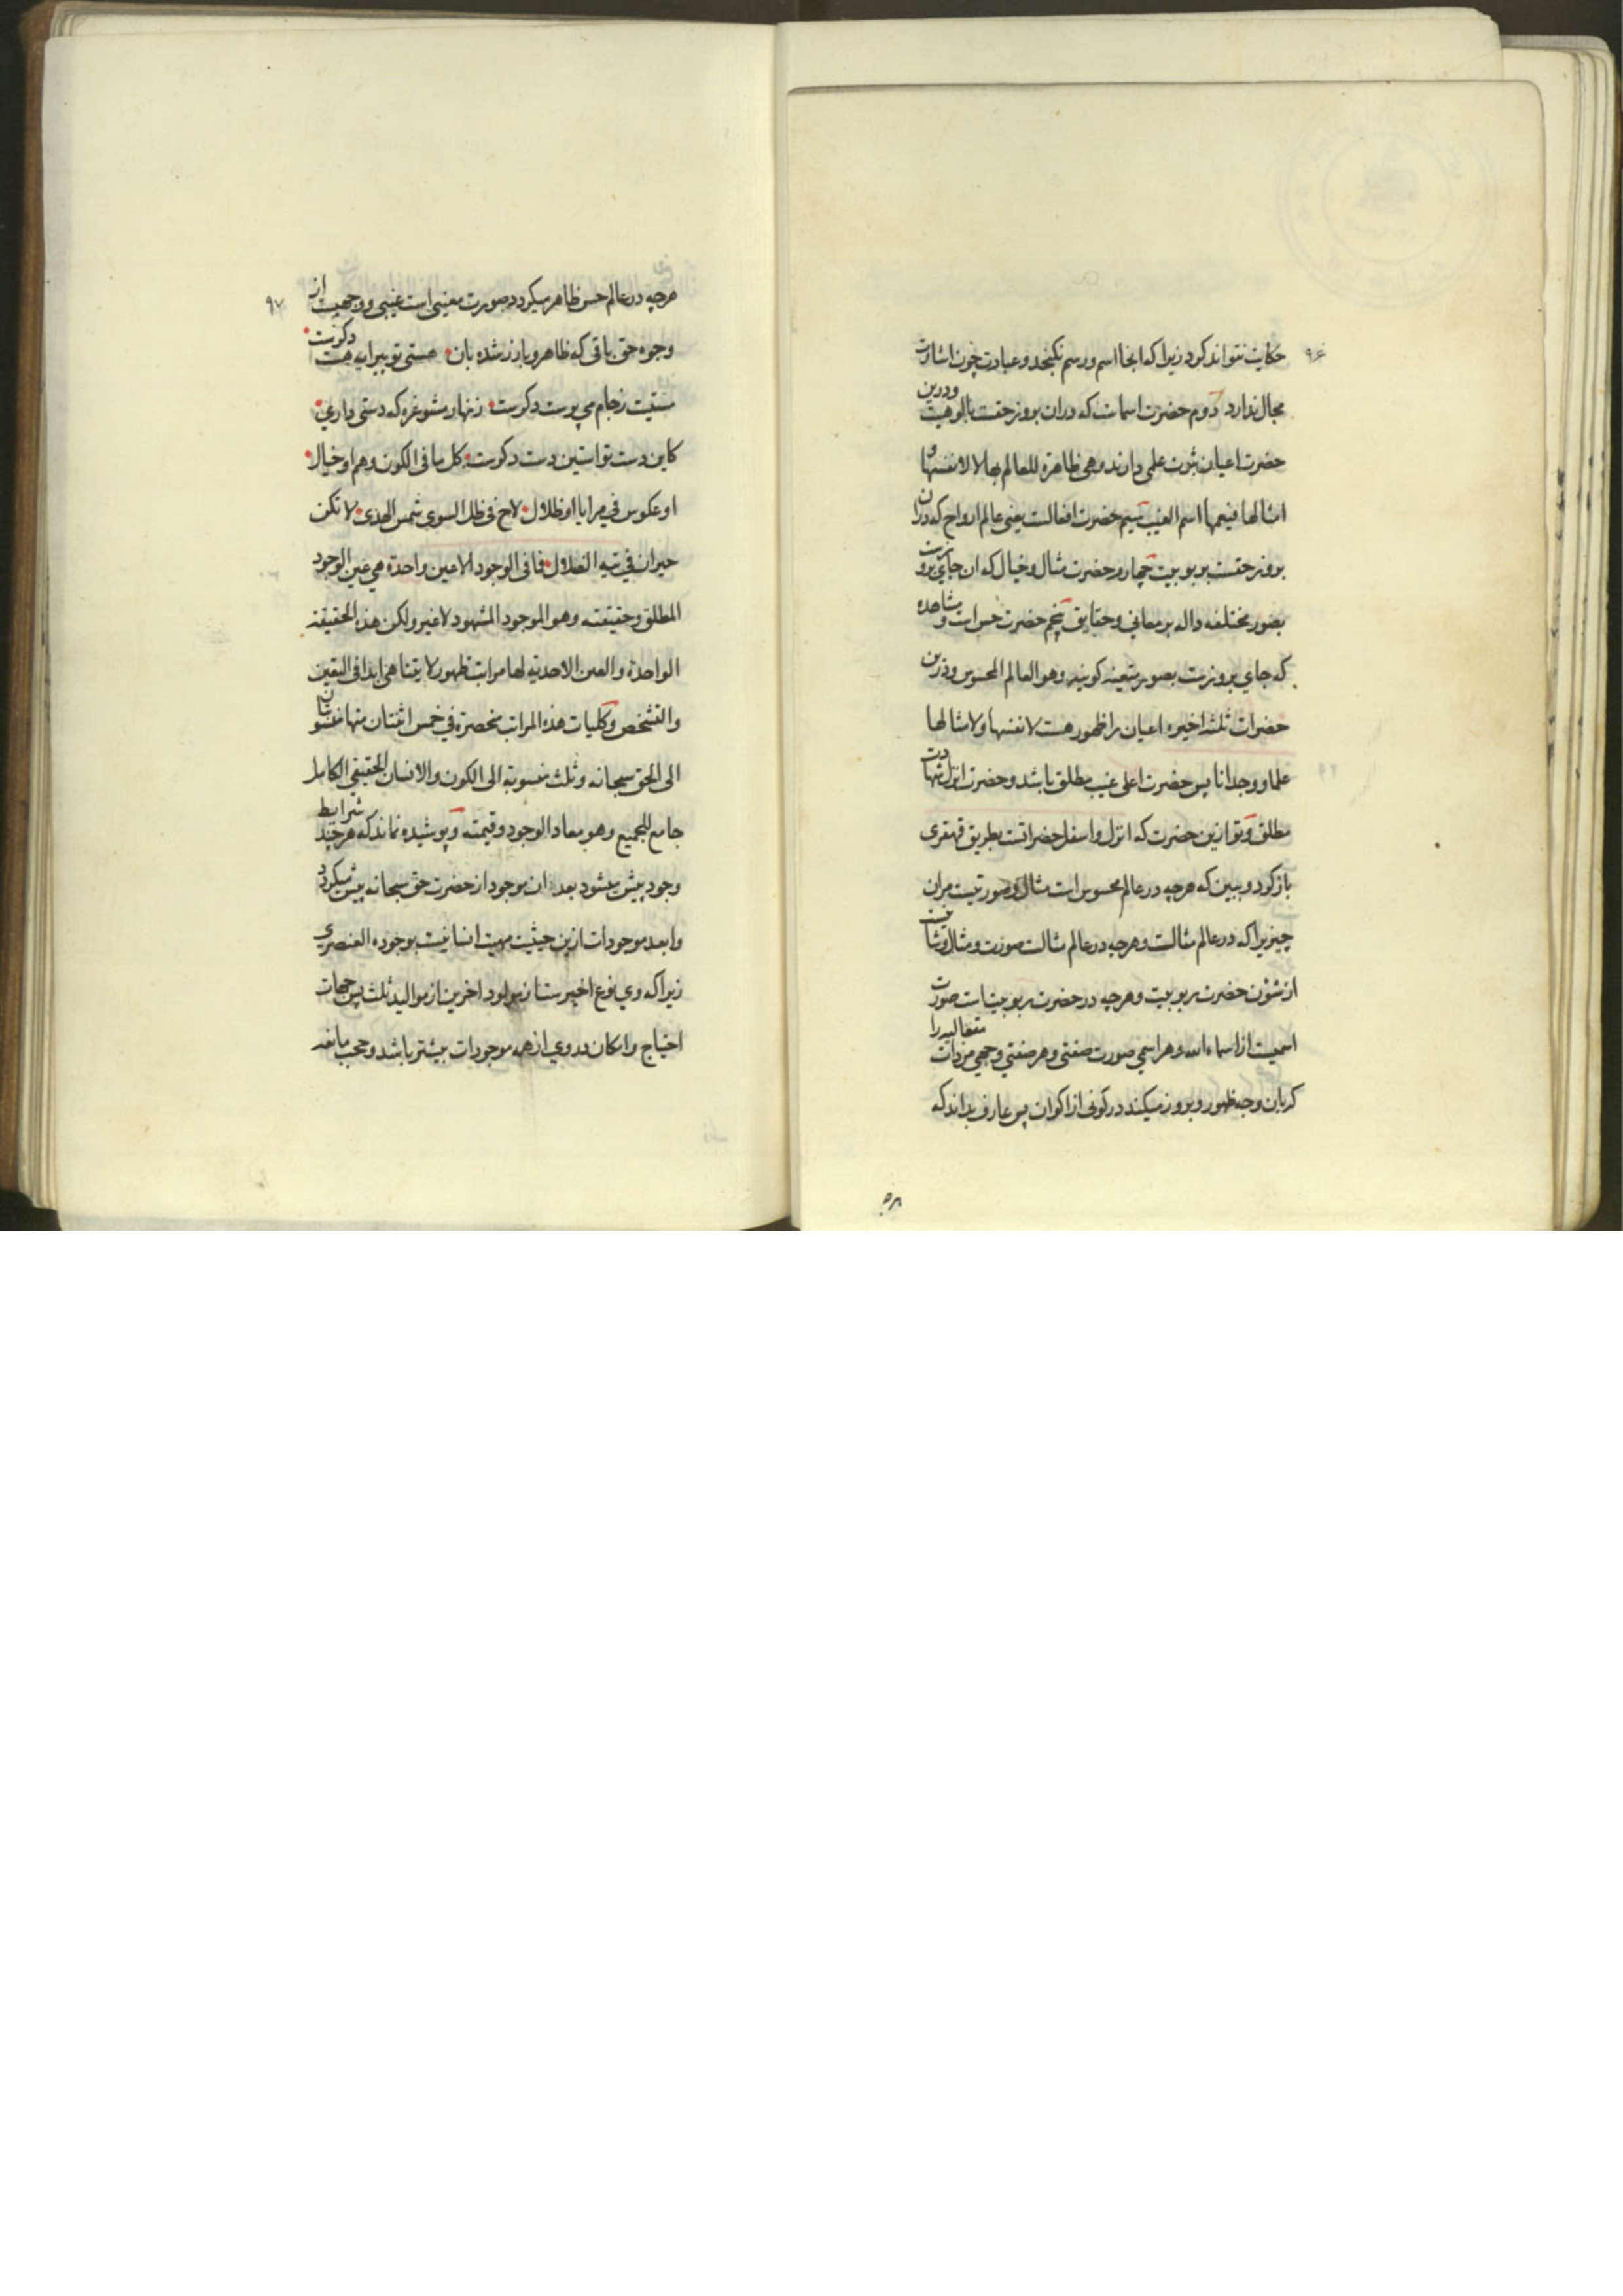 ۹۶
حکایت نتواند کرد زیرا که انجا اسم ورسم نکنجد وعبادت چون اشارت
مجال ندارد دوم حضرت اسماست که دران بروز حقست بالوهیت ودرین
حضرت اعیان ثبوت علمی دارند وهی ظاهرة للعالم بها لا لانفسها و
امثالها فیعمها اسم الغیب سیم حضرت افعالست یعنی عالم ارواح که دران
بروز حقست بربوبیت چهارم حضرت مثال وخیال که ان جای بروزست
بصور مختلفه داله بر معانی وحقایق پنجم حضرت حس است ومشاهده
که جای بروزست بصور متعینه کونیه وهو العالم المحسوس ودرین
حضرات ثلثه اخیره اعیان را ظهور هست لانفسها ولامثالها
علما ووجدانا پس حضرت اعلی غیب مطلق باشد وحضرت انزل شهادت
مطلق وتو ازین حضرت که انزل واسفل حضراتست بطریق قهقری
بازکرد وببین که هرچه در عالم محسوس است مثال وصورتیست مران
چیزیرا که در عالم مثالست وهرچه در عالم مثالست صورت ومثال وشانیست
از شؤن حضرت ربوبیت وهرچه در حضرت ربوبیتست صورت
اسمیست از اسماء الله وهر اسمی صورت صفتی وهر صفتی وجهی مر ذات متعالیه را
که بان وجه ظهور وبروز میکند در کونی از اکوان پس عارف بداند که
۵۸
۹۷
هرچه در عالم حس ظاهر میکردد صورت معنیی است غیبی ووجهیست از
وجوه حق باقی که ظاهر وبارز شده بان هستی تو پیرایه هست دکرست
مستیت زجام می پرست دکرست زنهار مشو غره که دستی داری
کاین دست تو استین دست دکرست کل ما فی الکون وهم او خیال
او عکوس فی مرایا او ظلال لاح فی ظل السوی شمس الهدی لا تکن
حیران فی تیه الضلال فما فی الوجود الا عین واحدة هی عین الوجود
المطلق وحقیقته وهو الموجود المشهود لا غیر ولکن هذه الحقیقة
الواحدة والعین الاحدیة لها مراتب ظهور لا یتناهی ابدا فی التعین
والتشخص وکلیات هذه المراتب منحصرة فی خمس اثنتان منها منسوبتان
الی الحق سبحانه وثلث منسوبة الی الکون والانسان الحقیقی الکامل
جامع للجمیع وهو معاد الوجود وقیمته وپوشیده نماند که هرچند شرایط
وجود بیش میشود بعد ان موجود از حضرت حق سبحانه بیش میکردد
وابعد موجودات ازین حیثیت مهیت انسانیست بوجوده العنصری
زیرا که وی نوع اخیرست از مولود اخرین از موالید ثلث پس جهات
احتیاج وامکان در وی از همه موجودات بیشتر باشد وحجب مانعه